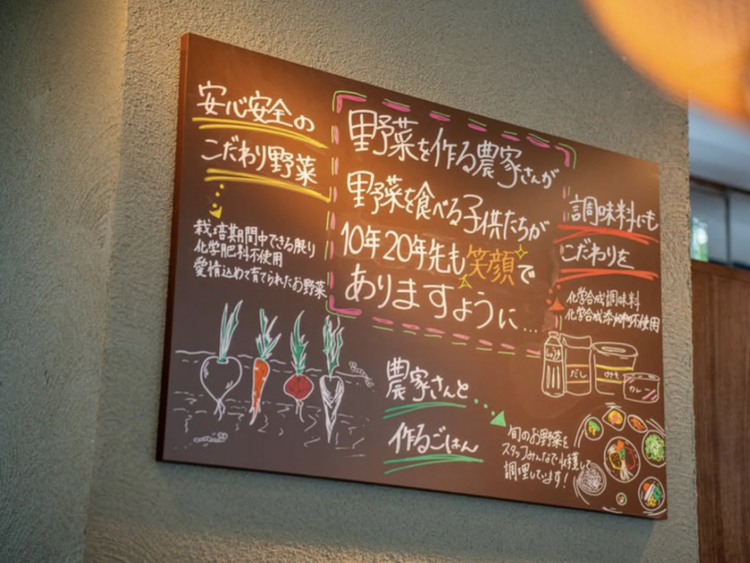 安心安全の
こだわり野菜
栽培期間中できる限り
化学肥料不使用
愛情込めて育てられたお野菜
野菜を作る農家さんが
野菜を食べる子供たちが
10年20年先も笑顔で
ありますように…
調味料にも
こだわりを
化学合成調味料
化学合成添加物不使用
だし
みそ
カレー
農家さんと
作るごはん
旬のお野菜を
スタッフみんなで収穫し
調理しています!